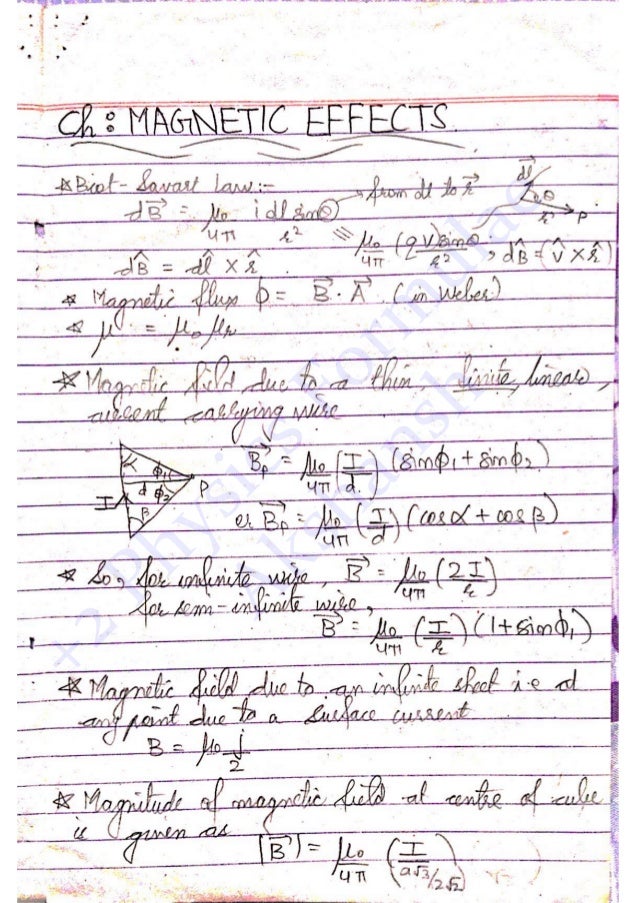 Ch : MAGNETIC EFFECTS.
☆ Biot-Savart Law:-
dB⃗ = μ₀/4π i dl sinθ/r² from dl to r⃗
= μ₀/4π (qv) sinθ/r² , dB̂ = (v̂ × r̂)
dB̂ = dl̂ × r̂
dl⃗ θ r⃗ P
☆ Magnetic flux ϕ = B⃗ . A⃗ (in Weber)
☆ μ = μ₀ μr
☆ Magnetic field due to a thin, finite, linear,
current carrying wire
α ϕ₁ d ϕ₂ P I β
B⃗p = μ₀/4π (I/d) (sinϕ₁ + sinϕ₂)
or B⃗p = μ₀/4π (I/d) (cosα + cosβ)
☆ So, for infinite wire, B⃗ = μ₀/4π (2I/r)
for semi-infinite wire,
B⃗ = μ₀/4π (I/r) (1+sinϕ₁)
☆ Magnetic field due to an infinite sheet i.e at
any point due to a surface current
B = μ₀ j/2
☆ Magnitude of magnetic field at centre of cube
is given as
|B⃗| = μ₀/4π (I/a√3/2√2)
+2 Physics Formulae
Akansh